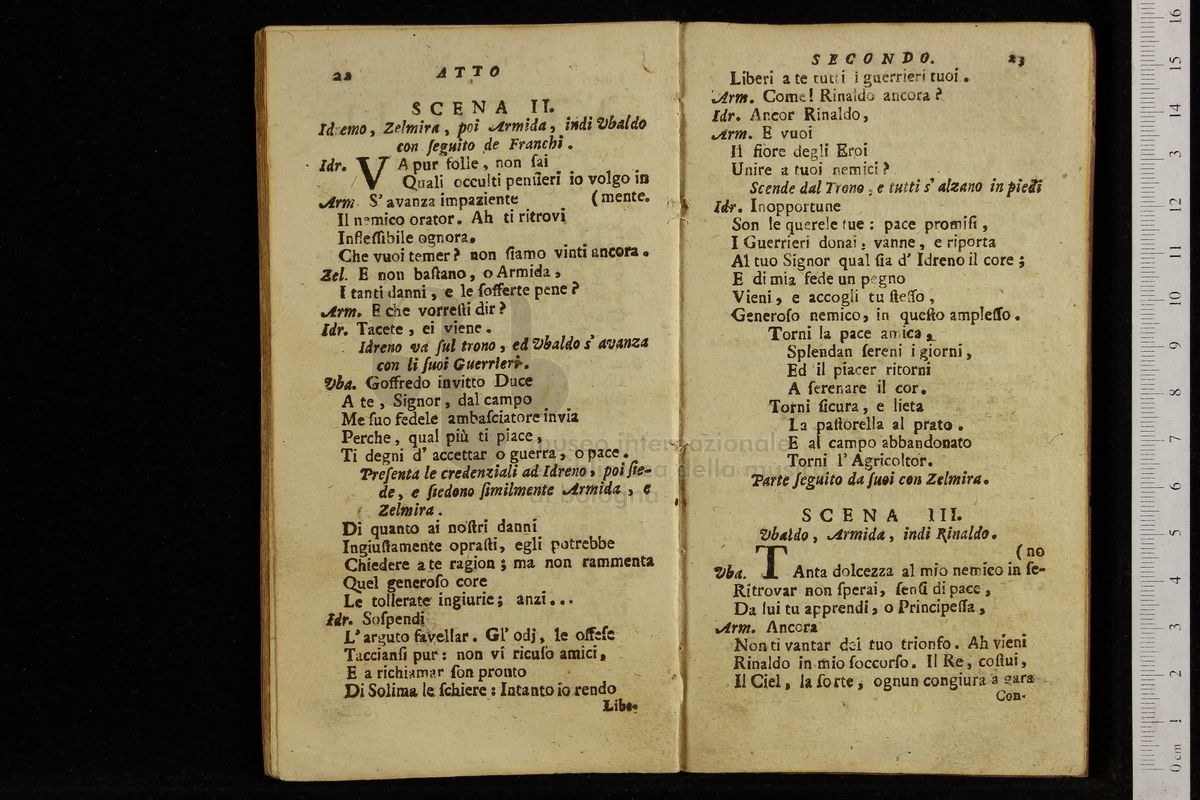 22 ATTO
SCENA II.
Idremo, Zelmira, poi Armida, indi Vbaldo
con ſeguito de Franchi.
Idr. VA pur folle, non ſai
Quali occulti penſieri io volgo in
Arm. S'avanza impaziente (mente.
Il nemico orator. Ah ti ritrovi
Infleſſibile ognora.
Che vuoi temer? non ſiamo vinti ancora.
Zel. E non baſtano, o Armida,
I tanti danni, e le ſofferte pene?
Arm. E che vorreſti dir?
Idr. Tacete, ei viene.
Idreno va ſul trono, ed Vbaldo s'avanza
con li ſuoi Guerrieri.
Vba. Goffredo invitto Duce
A te, Signor, dal campo
Me ſuo fedele ambaſciatore invia
Perche, qual più ti piace,
Ti degni d'accettar o guerra, o pace.
Preſenta le credenziali ad Idreno, poi ſie-
de, e ſiedono ſimilmente Armida, e
Zelmira.
Di quanto ai noſtri danni
Ingiuſtamente opraſti, egli potrebbe
Chiedere a te ragion; ma non rammenta
Quel generoſo core
Le tollerate ingiurie; anzi...
Idr. Soſpendi
L'arguto favellar. Gl'odj, le offeſe
Taccianſi pur: non vi ricuſo amici,
E a richiamar ſon pronto
Di Solima le ſchiere: Intanto io rendo
Libe-
SECONDO. 23
Liberi a te tutti i guerrieri tuoi.
Arm. Come! Rinaldo ancora?
Idr. Ancor Rinaldo,
Arm. E vuoi
Il fiore degli Eroi
Unire a tuoi nemici?
Scende dal Trono, e tutti s'alzano in piedi
Idr. Inopportune
Son le querele tue: pace promiſi,
I Guerrieri donai; vanne, e riporta
Al tuo Signor qual ſia d'Idreno il core;
E di mia fede un pegno
Vieni, e accogli tu ſteſſo,
Generoſo nemico, in queſto ampleſſo.
Torni la pace amica,
Splendan ſereni i giorni,
Ed il piacer ritorni
A ſerenare il cor.
Torni ſicura, e lieta
La paſtorella al prato.
E al campo abbandonato
Torni l'Agricoltor.
Parte ſeguito da ſuoi con Zelmira.
SCENA III.
Vbaldo, Armida, indi Rinaldo.
(no
Vba. TAnta dolcezza al mio nemico in ſe-
Ritrovar non ſperai, ſenſi di pace,
Da lui tu apprendi, o Principeſſa,
Arm. Ancora
Non ti vantar del tuo trionfo. Ah vieni
Rinaldo in mio ſoccorſo. Il Re, coſtui,
Il Ciel, la ſorte, ognun congiura a gara
Con-
museo internazionale
della musica
di bologna
0 cm 1 2 3 4 5 6 7 8 9 10 11 12 13 14 15 16